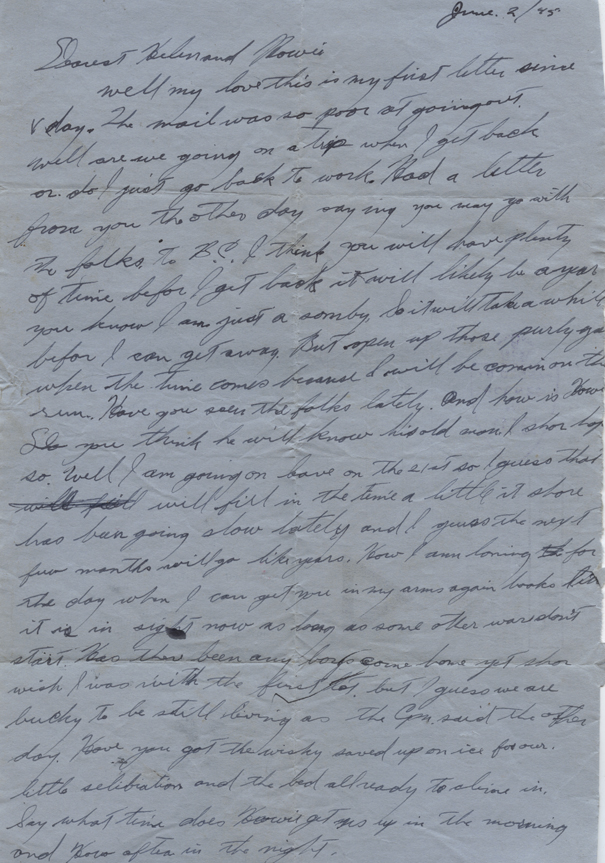 June. 2/45
Dearest Helen and Howie
well my love this is my first letter since
v day. The mail was so poor at going out.
well are we going on a trip when I get back
or do I just go back to work. Had a letter
from you the other day saying you may go with
the folks to B.C. I think you will have plenty
of time befor I get back it will likely be a year
you know I am just a so it will take a while
befor I can get away. But open up those purly ga
when the time comes because I will be comin on the
run. Have you seen the folks lately. And how is Howi
Do you think he will know his old man I shor hop
so. Well I am going on leave on the 21st so I guess that
will fill will fill in the time a little it shore
has been going slow lately and I guess the next
few months will go like years. How I am loning for
the day when I can get you in my arms again looks like
it is in sight now as long as some other war dont
start. Has there been any boys come home yet shor
wish I was with the first lot, but I guess we are
lucky to be still living as the Cpn. said the other
day. Have you got the wisky saved up on ice for our.
little selibration and the bed all ready to in.
Say what time does Howie get you up in the morning
and How often in the night.